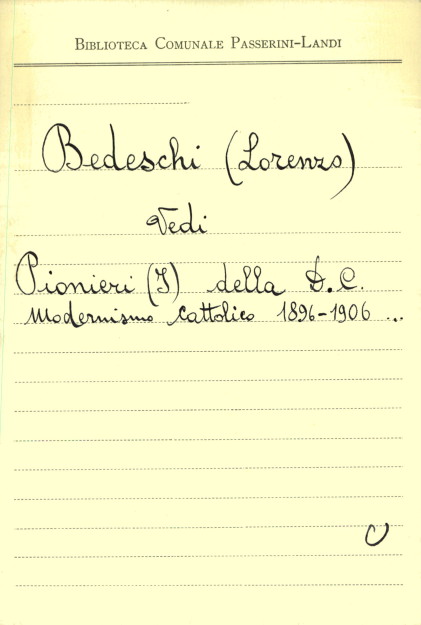 BIBLIOTECA COMUNALE PASSERINI-LANDI
Bedeschi (Lorenzo)
Vedi
Pionieri (I) della D.C.
Modernismo Cattolico 1896-1906 ...